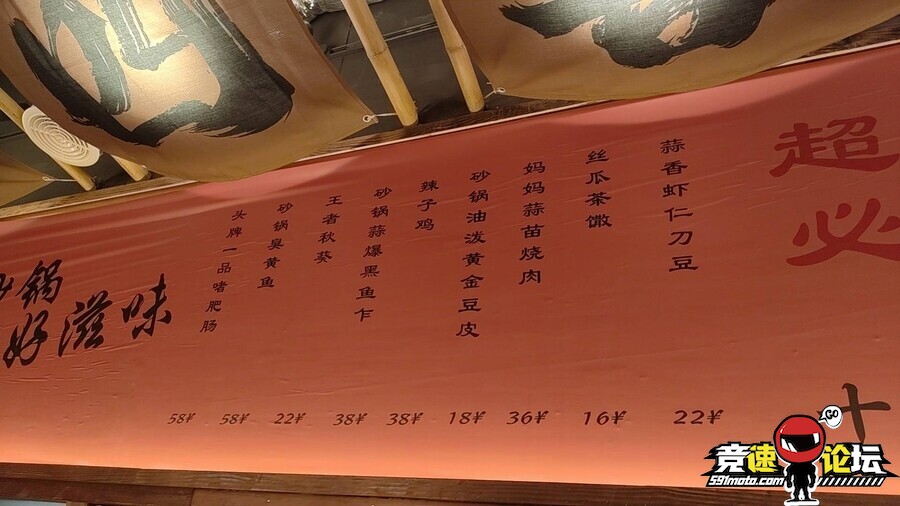 超
必
十
蒜香虾仁刀豆
丝瓜茶馓
妈妈蒜苗烧肉
砂锅油泼黄金豆皮
辣子鸡
砂锅蒜爆黑鱼乍
王者秋葵
砂锅臭黄鱼
头牌一品啫肥肠
58¥ 58¥ 22¥ 38¥ 38¥ 18¥ 36¥ 16¥ 22¥
锅
好滋味
GO
竞速论坛
591moto.com